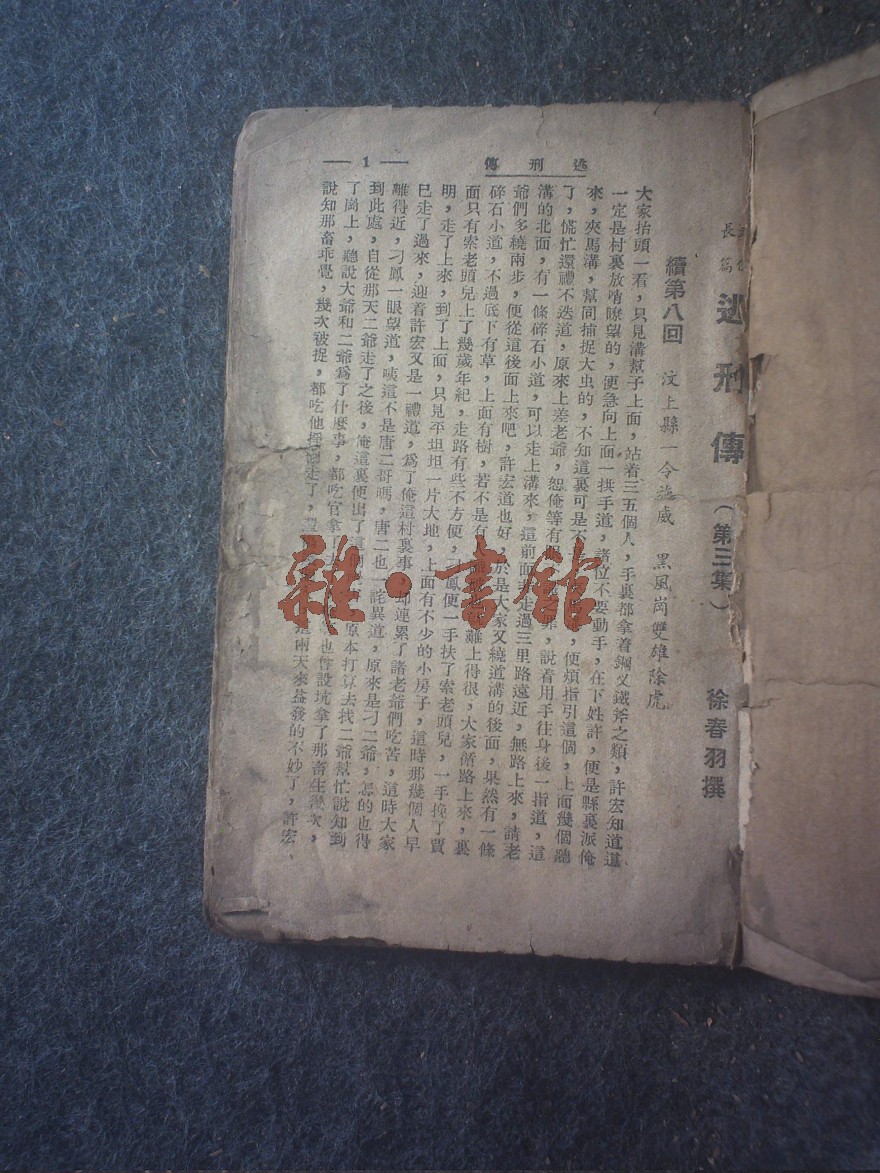 長篇
逃刑傳(第三集) 徐春羽撰
續第八回 汶上縣一令施威 黑風崗雙雄除虎
大家抬頭一看,只見溝幫子上面,站着三五個人,手裏都拿着鋼叉鐵斧之類,許宏知道這
一定是村裏放哨瞭望的,便急向上面一拱手道,諸位不要動手,在下姓許,便是縣裏派俺
來,夾馬溝,幫同捕捉大虫的,不知這裏可是不 便煩指引這個,上面幾個聽
了,慌忙還禮不迭道,原來上差老爺,恕俺等有 說着用手往身後一指道,這
溝的北面,有一條碎石小道,可以走上溝來,這前面 走過三里路遠近,無路上來,請老
爺們多繞兩步,便從這後面上來吧,許宏道也好,於是大家又繞道溝的後面,果然有一條
碎石小道,不過底下有草,上面有樹,若不是有 難上得很,大家循路上來,裏
面只有索老頭兒上了幾歲年紀,走路有些不方便,刁鳳便一手扶了索老頭兒,一手挽了賈
明,走了上來,到了上面,只見平坦坦一片大地,上面有不少的小房子,這時那幾個人早
已走了過來,迎着許宏又是一禮道,爲了俺這村裏事,却連累了諸老爺們吃苦,這時大家
離得近,刁鳳一眼望道,咦這不是唐二哥嗎,唐二也一詫異道,原來是刁二爺,怎的也得
到此處,自從那天二爺走了之後,俺這裏便出了這個 原本打算去找二爺幫忙說知到
了崗上,聽說大爺和二爺爲了什麼事,都吃官拿 也曾設坑拿了那畜生幾次,
說知那畜乖覺,幾次被捉,都吃他 走了, 這兩天來益發的不妙了,許宏、
逃刑傳
— 1 —
雜·書館